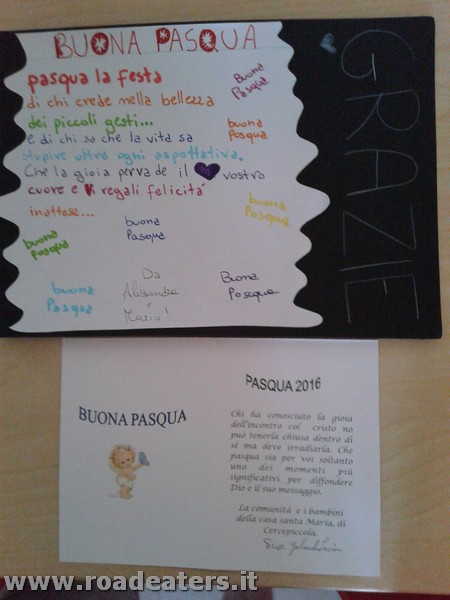 BUONA PASQUA
pasqua la festa
di chi crede nella bellezza
dei piccoli gesti...
e di chi sa che la vita sa
stupire oltre ogni aspettativa.
Che la gioia pervade il vostro
cuore e vi regali felicità
inattese...
buona
Pasqua
buona
Pasqua
buona
Pasqua
buona
Pasqua
buona
Pasqua
buona
Pasqua
Buona
Pasqua
Da
Alessandra
e
Mario!
GRAZIE
BUONA PASQUA
PASQUA 2016
Chi ha conosciuto la gioia
dell'incontro col cristo no
può tenerla chiusa dentro di
sé ma deve irradiarla. Che
pasqua sia per voi soltanto
uno dei momenti più
significativi per diffondere
Dio e il suo messaggio.
La comunità e i bambini
della casa santa Maria, di
Cercepiccola.
www.roadeaters.it